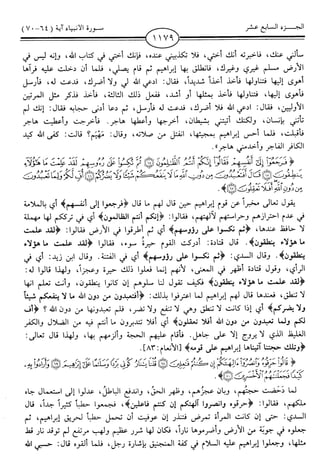 الجـــزء السابع عشر
١١٧٩
سورة الانبياء آية (٦٤-٧٠)
سألني عنك، فاخبرته أنك أختي، فلا تكذبيني عنده، فإنك أختي في كتاب الله، وإنه ليس في
الأرض مسلم غيري وغيرك، فانطلق بها إبراهيم ثم قام يصلي، فلما أن دخلت عليه فرآها
أهوى إليها فتناولها فأخذ أخذاً شديداً، فقال: ادعي الله لي ولا أضرك، فدعت له، فأرسل
فأهوى إليها، فتناولها فأخذ بمثلها أو أشد، ففعل ذلك الثالثة، فأخذ فذكر مثل المرتين
الأوليين، فقال: ادعي الله فلا أضرك، فدعت له فأرسل، ثم دعا أدنى حجابه فقال: إنك لم
تأتني بإنسان، ولكنك أتيتني بشيطان، أخرجها وأعطها هاجر. فأخرجت وأعطيت هاجر
فأقبلت، فلما أحس إبراهيم بمجيئها، انفتل من صلاته، وقال: مَهْيَمْ؟ قالت: كفى الله كيد
الكافر الفاجر وأخدمني هاجر».
﴿فَرَجَعُوا إِلَى أَنفُسِهِمْ فَقَالُوا إِنَّكُمْ أَنتُمُ الظَّالِمُونَ ثُمَّ نُكِسُوا عَلَى رُءُوسِهِمْ لَقَدْ عَلِمْتَ مَا هَؤُلَاءِ
يَنطِقُونَ قَالَ أَفَتَعْبُدُونَ مِن دُونِ اللَّهِ مَا لَا يَنفَعُكُمْ شَيْئًا وَلَا يَضُرُّكُمْ أُفٍّ لَّكُمْ وَلِمَا تَعْبُدُونَ
مِن دُونِ اللَّهِ أَفَلَا تَعْقِلُونَ﴾.
يقول تعالى مخبراً عن قوم إبراهيم حين قال لهم ما قال ﴿فرجعوا إلى أنفسهم﴾ أي بالملامة
في عدم احترازهم وحراستهم لآلهتهم، فقالوا: ﴿إنكم أنتم الظالمون﴾ أي في ترككم لها مهملة
لا حافظ عندها، ﴿ثم نكسوا على رؤوسهم﴾ أي ثم أطرقوا في الأرض فقالوا: ﴿لقد علمت
ما هؤلاء ينطقون﴾. قال قتادة: أدركت القوم حيرةُ سوء، فقالوا: ﴿لقد علمت ما هؤلاء
ينطقون﴾. وقال السدي: ﴿ثم نكسوا على رؤوسهم﴾ أي في الفتنة. وقال ابن زيد: أي في
الرأي، وقول قتادة أظهر في المعنى، لأنهم إنما فعلوا ذلك حيرة وعجزاً، ولهذا قالوا له:
﴿لقد علمت ما هؤلاء ينطقون﴾ فكيف تقول لنا سلوهم إن كانوا ينطقون، وأنت تعلم انها
لا تنطق، فعندها قال لهم إبراهيم لما اعترفوا بذلك: ﴿أفتعبدون من دون الله ما لا ينفعكم شيئاً
ولا يضركم﴾ أي إذا كانت لا تنطق وهي لا تنفع ولا تضر، فلم تعبدونها من دون الله؟ ﴿أف
لكم ولما تعبدون من دون الله أفلا تعقلون﴾ أي أفلا تتدبرون ما أنتم فيه من الضلال والكفر
الغليظ الذي لا يروج إلا على جاهل. فأقام عليهم الحجة وألزمهم بها، ولهذا قال تعالى:
﴿وتلك حجتنا آتيناها إبراهيم على قومه﴾ [الأنعام: ٨٣].
لما دُحضت حجتهم، وبان عجزهم، وظهر الحق، واندفع الباطل، عدلوا إلى استعمال جاه
ملكهم، فقالوا: ﴿حرقوه وانصروا آلهتكم إن كنتم فاعلين﴾، فجمعوا حطباً كثيراً جداً. قال
السدي: حتى إن كانت المرأة تمرض فتنذر إن عوفيت أن تحمل حطباً لحريق إبراهيم، ثم
جعلوه في جَوبَة من الأرض وأضرموها ناراً، فكان لها شرر عظيم ولهب مرتفع لم توقد نار قط
مثلها، وجعلوا إبراهيم عليه السلام في كفة المنجنيق بإشارة رجل، فلما ألقوه قال: حسبي الله